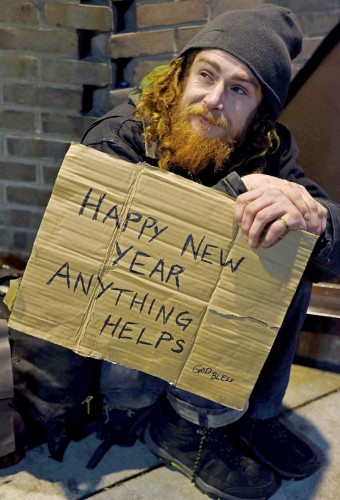 HAPPY NEW
YEAR
ANYTHING
HELPS
GOD BLESS